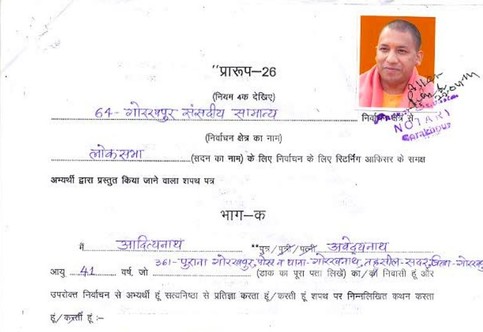 "प्रारूप–26
(नियम 4क देखिए)
64- गोरखपुर संसदीय सामान्य निर्वाचन क्षेत्र से
(निर्वाचन क्षेत्र का नाम)
NOTARY
Gorakhpur
लोकसभा (सदन का नाम) के लिए निर्वाचन के लिए रिटर्निंग आफिसर के समक्ष
अभ्यर्थी द्वारा प्रस्तुत किया जाने वाला शपथ पत्र
भाग–क
मै आदित्यनाथ **पुत्र/पुत्री/पत्नी अवेद्यनाथ
361- पुराना गोरखपुर, पोस्ट व थाना- गोरखनाथ, तहसील- सदर, जिला- गोरखपुर
आयु 41 वर्ष, जो (डाक का पूरा पता लिखें) का/की निवासी हूं और
उपरोक्त निर्वाचन से अभ्यर्थी हूं सत्यनिष्ठा से प्रतिज्ञा करता हूं/करती हूं शपथ पर निम्नलिखित कथन करता
हूं/करती हूं :-